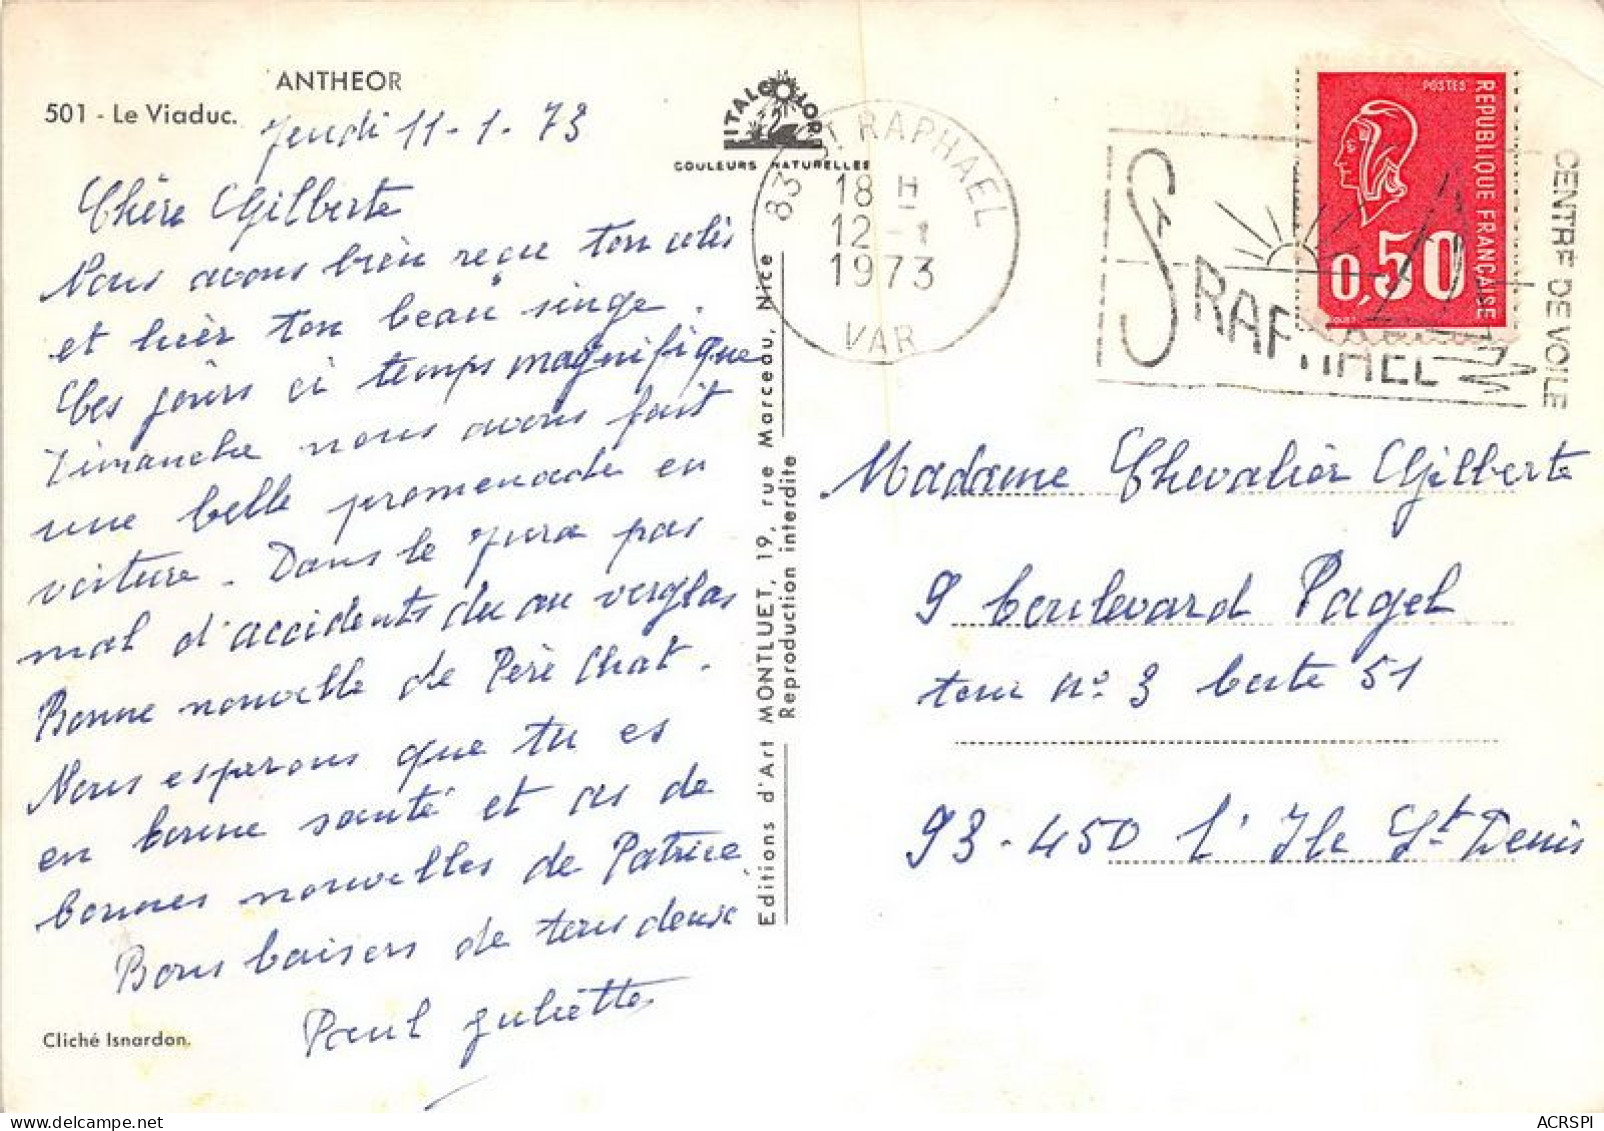 ANTHEOR
501 - Le Viaduc.
Jeudi 11-1.73
Chère Gilberte
Nous avons bien reçu ton colis
et hier ton beau singe.
Ces jours ci temps magnifique
Dimanche nous avons fait
une belle promenade en
voiture. Dans le Jura pas
mal d'accidents du au verglas
Bonne nouvelle de Père Chat.
Nous esperons que tu es
en bonne santé et as de
bonnes nouvelles de Patrice
Bons baisers de tous deux
Paul Juliette
Cliché Isnardon.
ITALCOLOR
COULEURS NATURELLES
Editions d'Art MONTLUET, 19, rue Marceau, Nice
Reproduction interdite
83 ST RAPHAEL
18 H
12 - 1
1973
VAR
ST RAPHAEL
CENTRE DE VOILE
POSTES
REPUBLIQUE FRANÇAISE
0,50
Madame Chevalier Gilberte
9 boulevard Pagel
tour n° 3 boite 51
93-450 L'Ile St Denis
ACRSPI